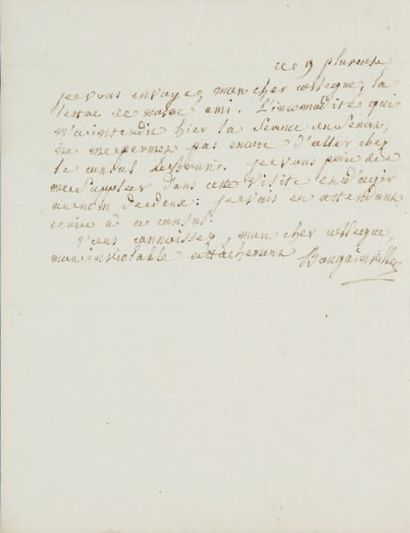 ce 9 pluviose
je vous envoye, mon cher collegue, la
lettre de notre ami. L'incommodité qui
m'a interdit hier la séance du Sénat,
ne me permet pas encore d'aller chez
le consul Je vous prie de
me suppléer dans cette visite et d'agir
au nom de deux: je vais en attendant
écrire à ce consul.
Vous connaissez, mon cher collegue,
mon inviolable attachement Bougainville